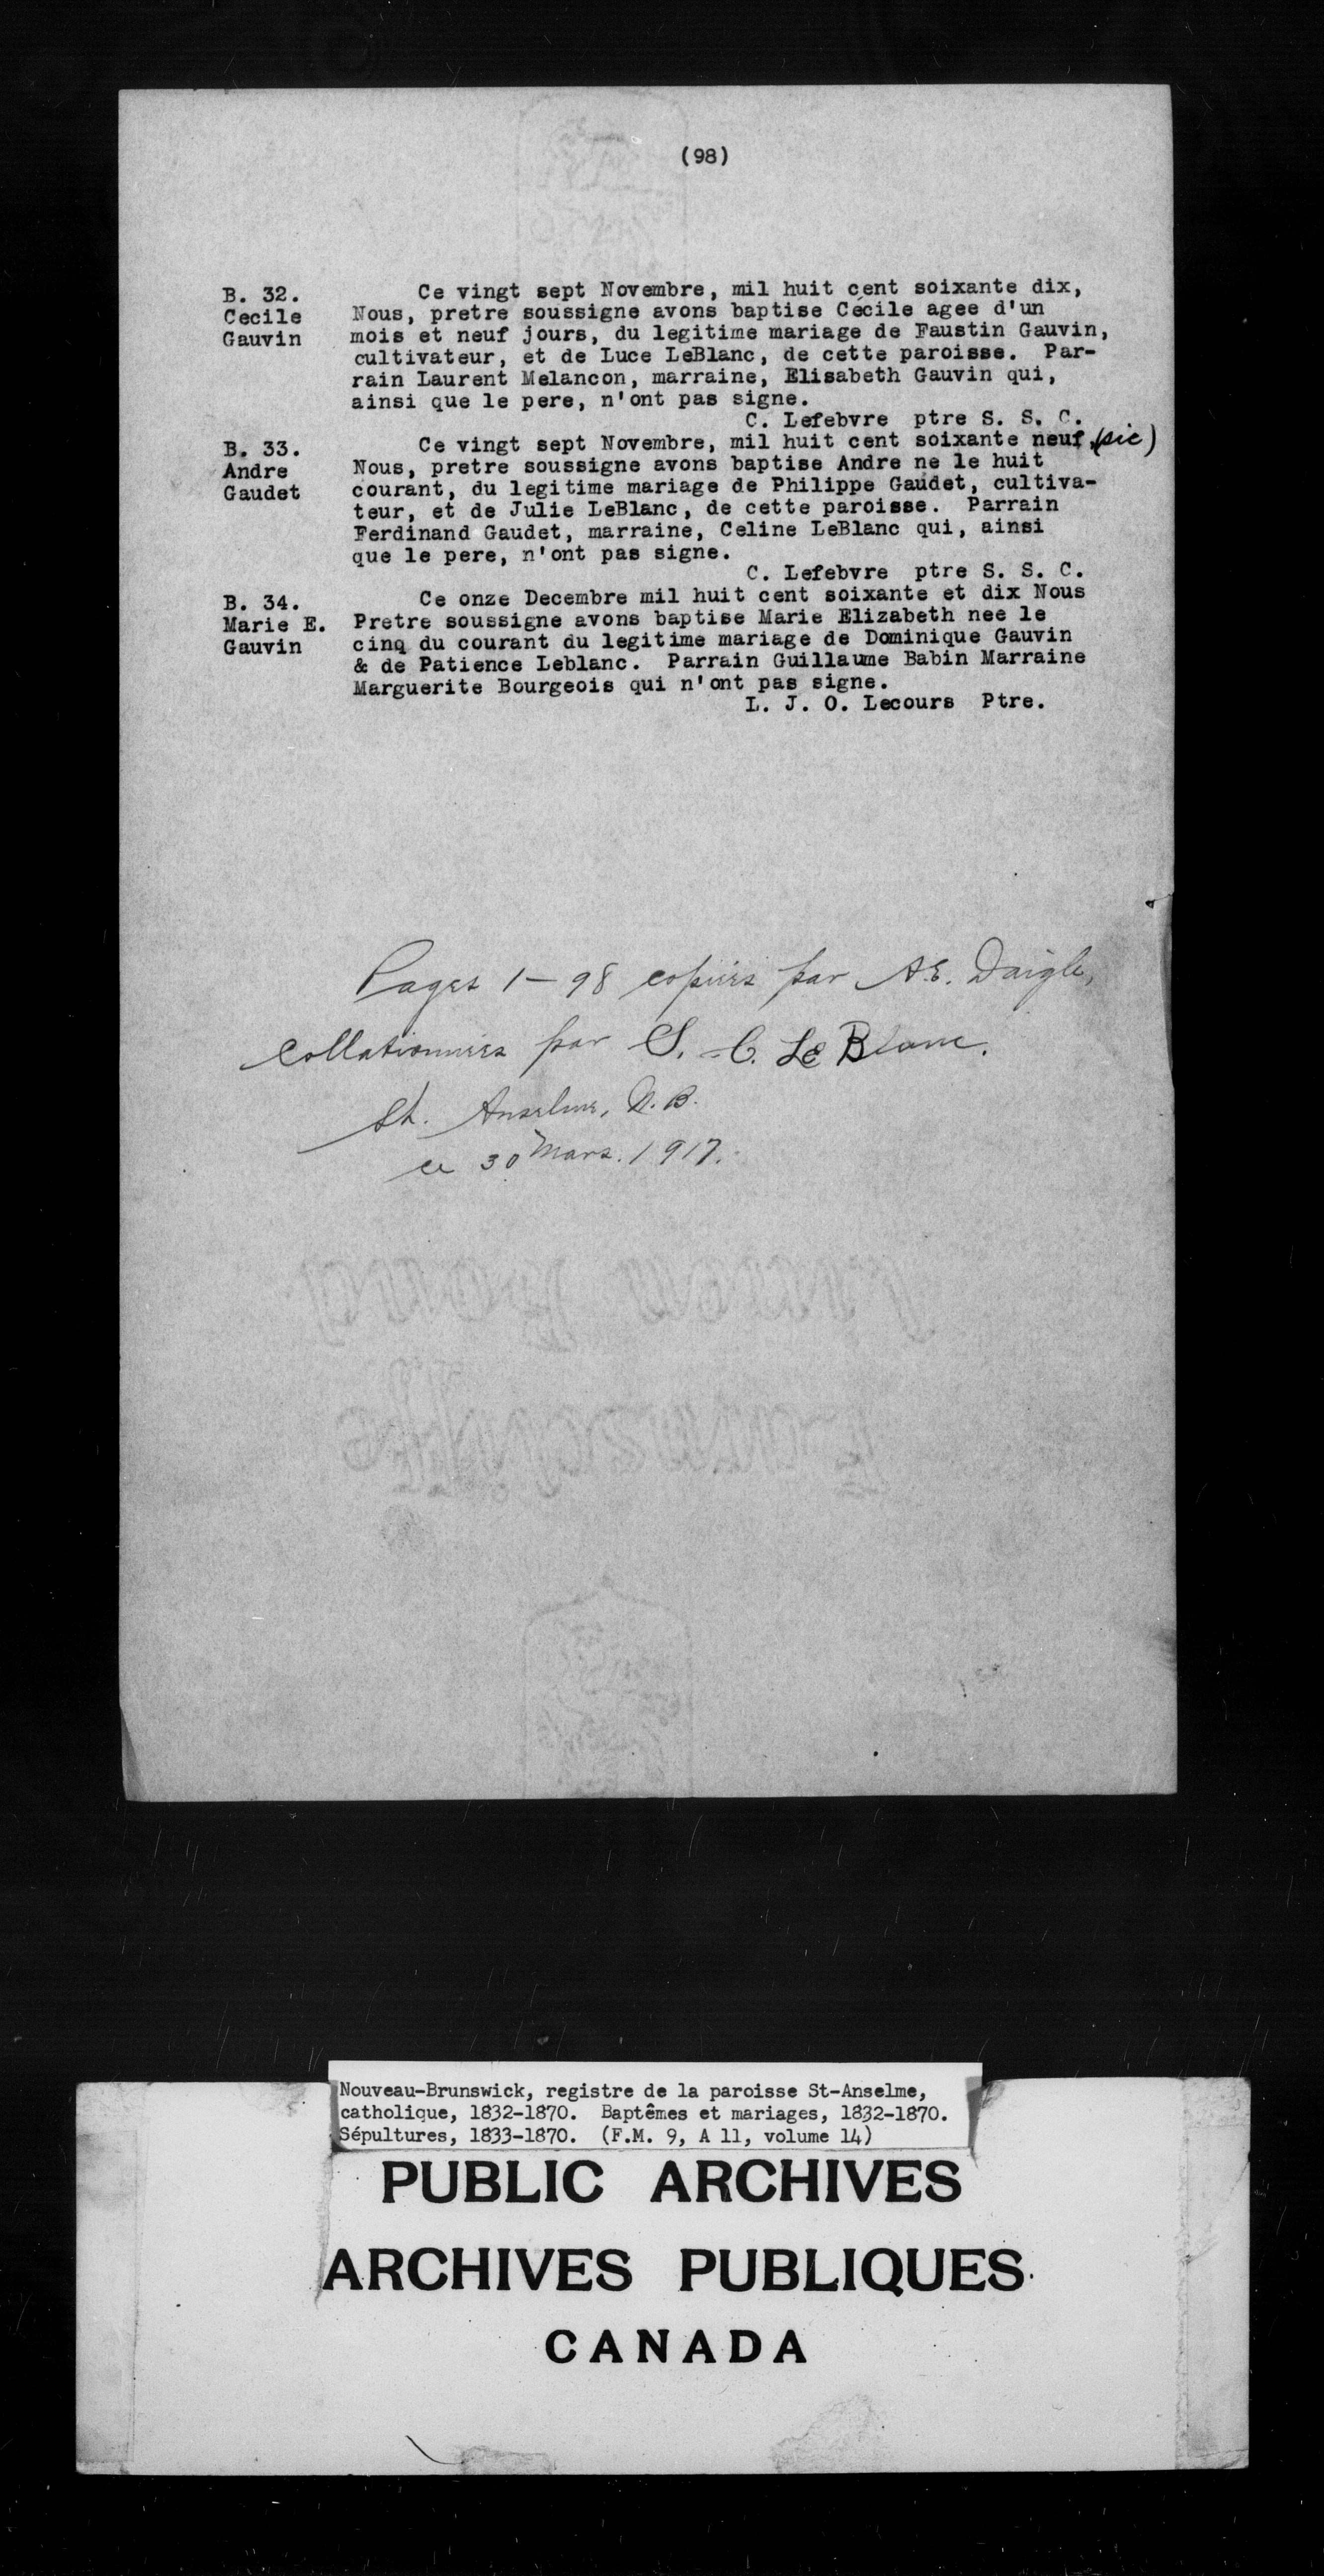 (98)
B. 32.
Cecile
Gauvin
Ce vingt sept Novembre, mil huit cent soixante dix,
Nous, pretre soussigne avons baptise Cécile agee d'un
mois et neuf jours, du legitime mariage de Faustin Gauvin,
cultivateur, et de Luce LeBlanc, de cette paroisse. Par-
rain Laurent Melancon, marraine, Elisabeth Gauvin qui,
ainsi que le pere, n'ont pas signe.
C. Lefebvre ptre S. S. C.
B. 33.
Andre
Gaudet
Ce vingt sept Novembre, mil huit cent soixante neuf (sic)
Nous, pretre soussigne avons baptise Andre ne le huit
courant, du legitime mariage de Philippe Gaudet, cultiva-
teur, et de Julie LeBlanc, de cette paroisse. Parrain
Ferdinand Gaudet, marraine, Celine LeBlanc qui, ainsi
que le pere, n'ont pas signe.
C. Lefebvre ptre S. S. C.
B. 34.
Marie E.
Gauvin
Ce onze Decembre mil huit cent soixante et dix Nous
Pretre soussigne avons baptise Marie Elizabeth nee le
cinq du courant du legitime mariage de Dominique Gauvin
& de Patience Leblanc. Parrain Guillaume Babin Marraine
Marguerite Bourgeois qui n'ont pas signe.
L. J. O. Lecours Ptre.
Pages 1-98 copiées par A.E. Daigle,
Collationnées par S.-C. Le Blanc.
St. Anselme, N.B.
ce 30 Mars. 1917.
Nouveau-Brunswick, registre de la paroisse St-Anselme,
catholique, 1832-1870. Baptêmes et mariages, 1832-1870.
Sépultures, 1833-1870. (F.M. 9, A 11, volume 14)
PUBLIC ARCHIVES
ARCHIVES PUBLIQUES
CANADA